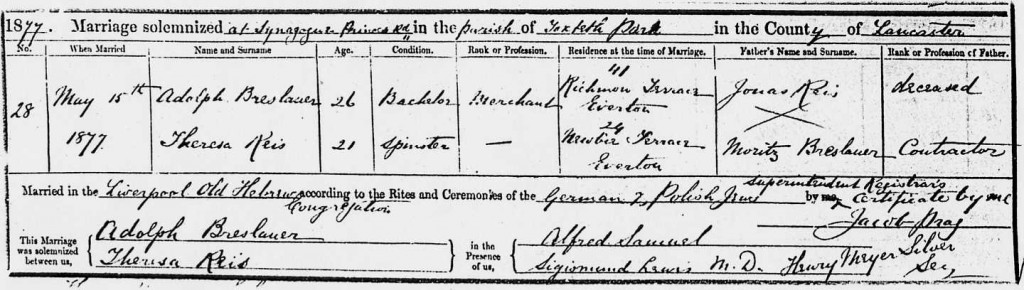 1877. Marriage solemnized at Synagogue Princes Rd in the parish of Toxteth Park in the County of Lancaster
No. When Married Name and Surname Age. Condition. Rank or Profession. Residence at the time of Marriage. Father's Name and Surname. Rank or Profession of Father.
28 May 15th Adolph Breslauer 26 Bachelor Merchant 41 Richmon Terrace Everton Jonas Reis deceased
1877 Theresa Reis 21 Spinster — 24 Terrace Everton Moritz Breslauer Contractor
Married in the Liverpool Old Hebrew Congregation according to the Rites and Ceremonies of the German & Polish Jews Superintendent Registrar's by me, Certificate by me
Jacob Prag
This Marriage was solemnized between us,
Adolph Breslauer
Theresa Reis
in the Presence of us,
Alfred Samuel
Sigismund Lewis M.D. Henry Meyer Silver
Sec,